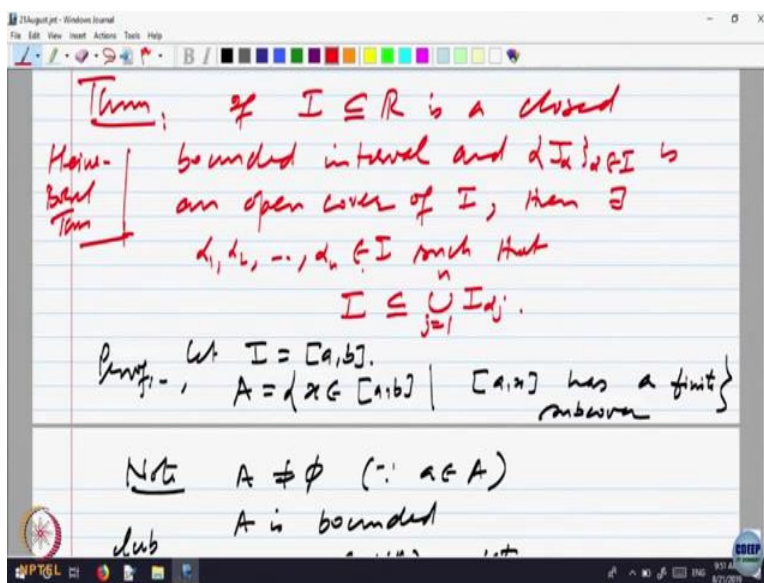 21August.jnt - Windows Journal
File Edit View Insert Actions Tools Help
Thm. If I ⊆ R is a closed
Heine- bounded interval and {Iα}α∈I is
Borel an open cover of I, then ∃
Thm
α1, α2, ..., αn ∈ I such that
I ⊆ ⋃_{j=1}^{n} Iαj.
Proof:-, Let I = [a,b].
A = {x ∈ [a,b] | [a,x] has a finite
subcover}
Note A ≠ φ (∵ a ∈ A)
A is bounded
lub
NPTEL
CDEEP
IIT BOMBAY
ENG
9:51 AM
8/21/2019